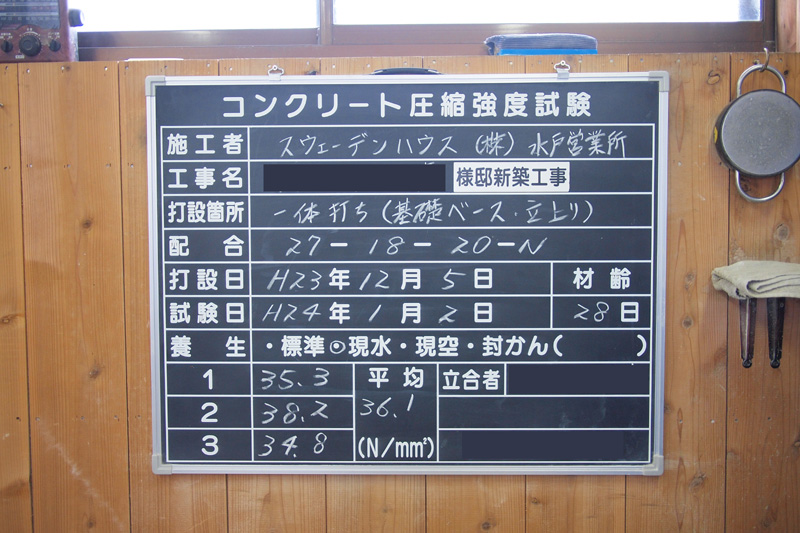 コンクリート圧縮強度試験
施工者 スウェーデンハウス(株)水戸営業所
工事名 様邸新築工事
打設箇所 一体打ち(基礎ベース・立上り)
配合 27-18-20-N
打設日 H23年12月5日 材齢
試験日 H24年1月2日 28日
養生 ・標準◉現水・現空・封かん( )
1 35.3 平均 立合者
2 38.2 36.1
3 34.8 (N/mm²)